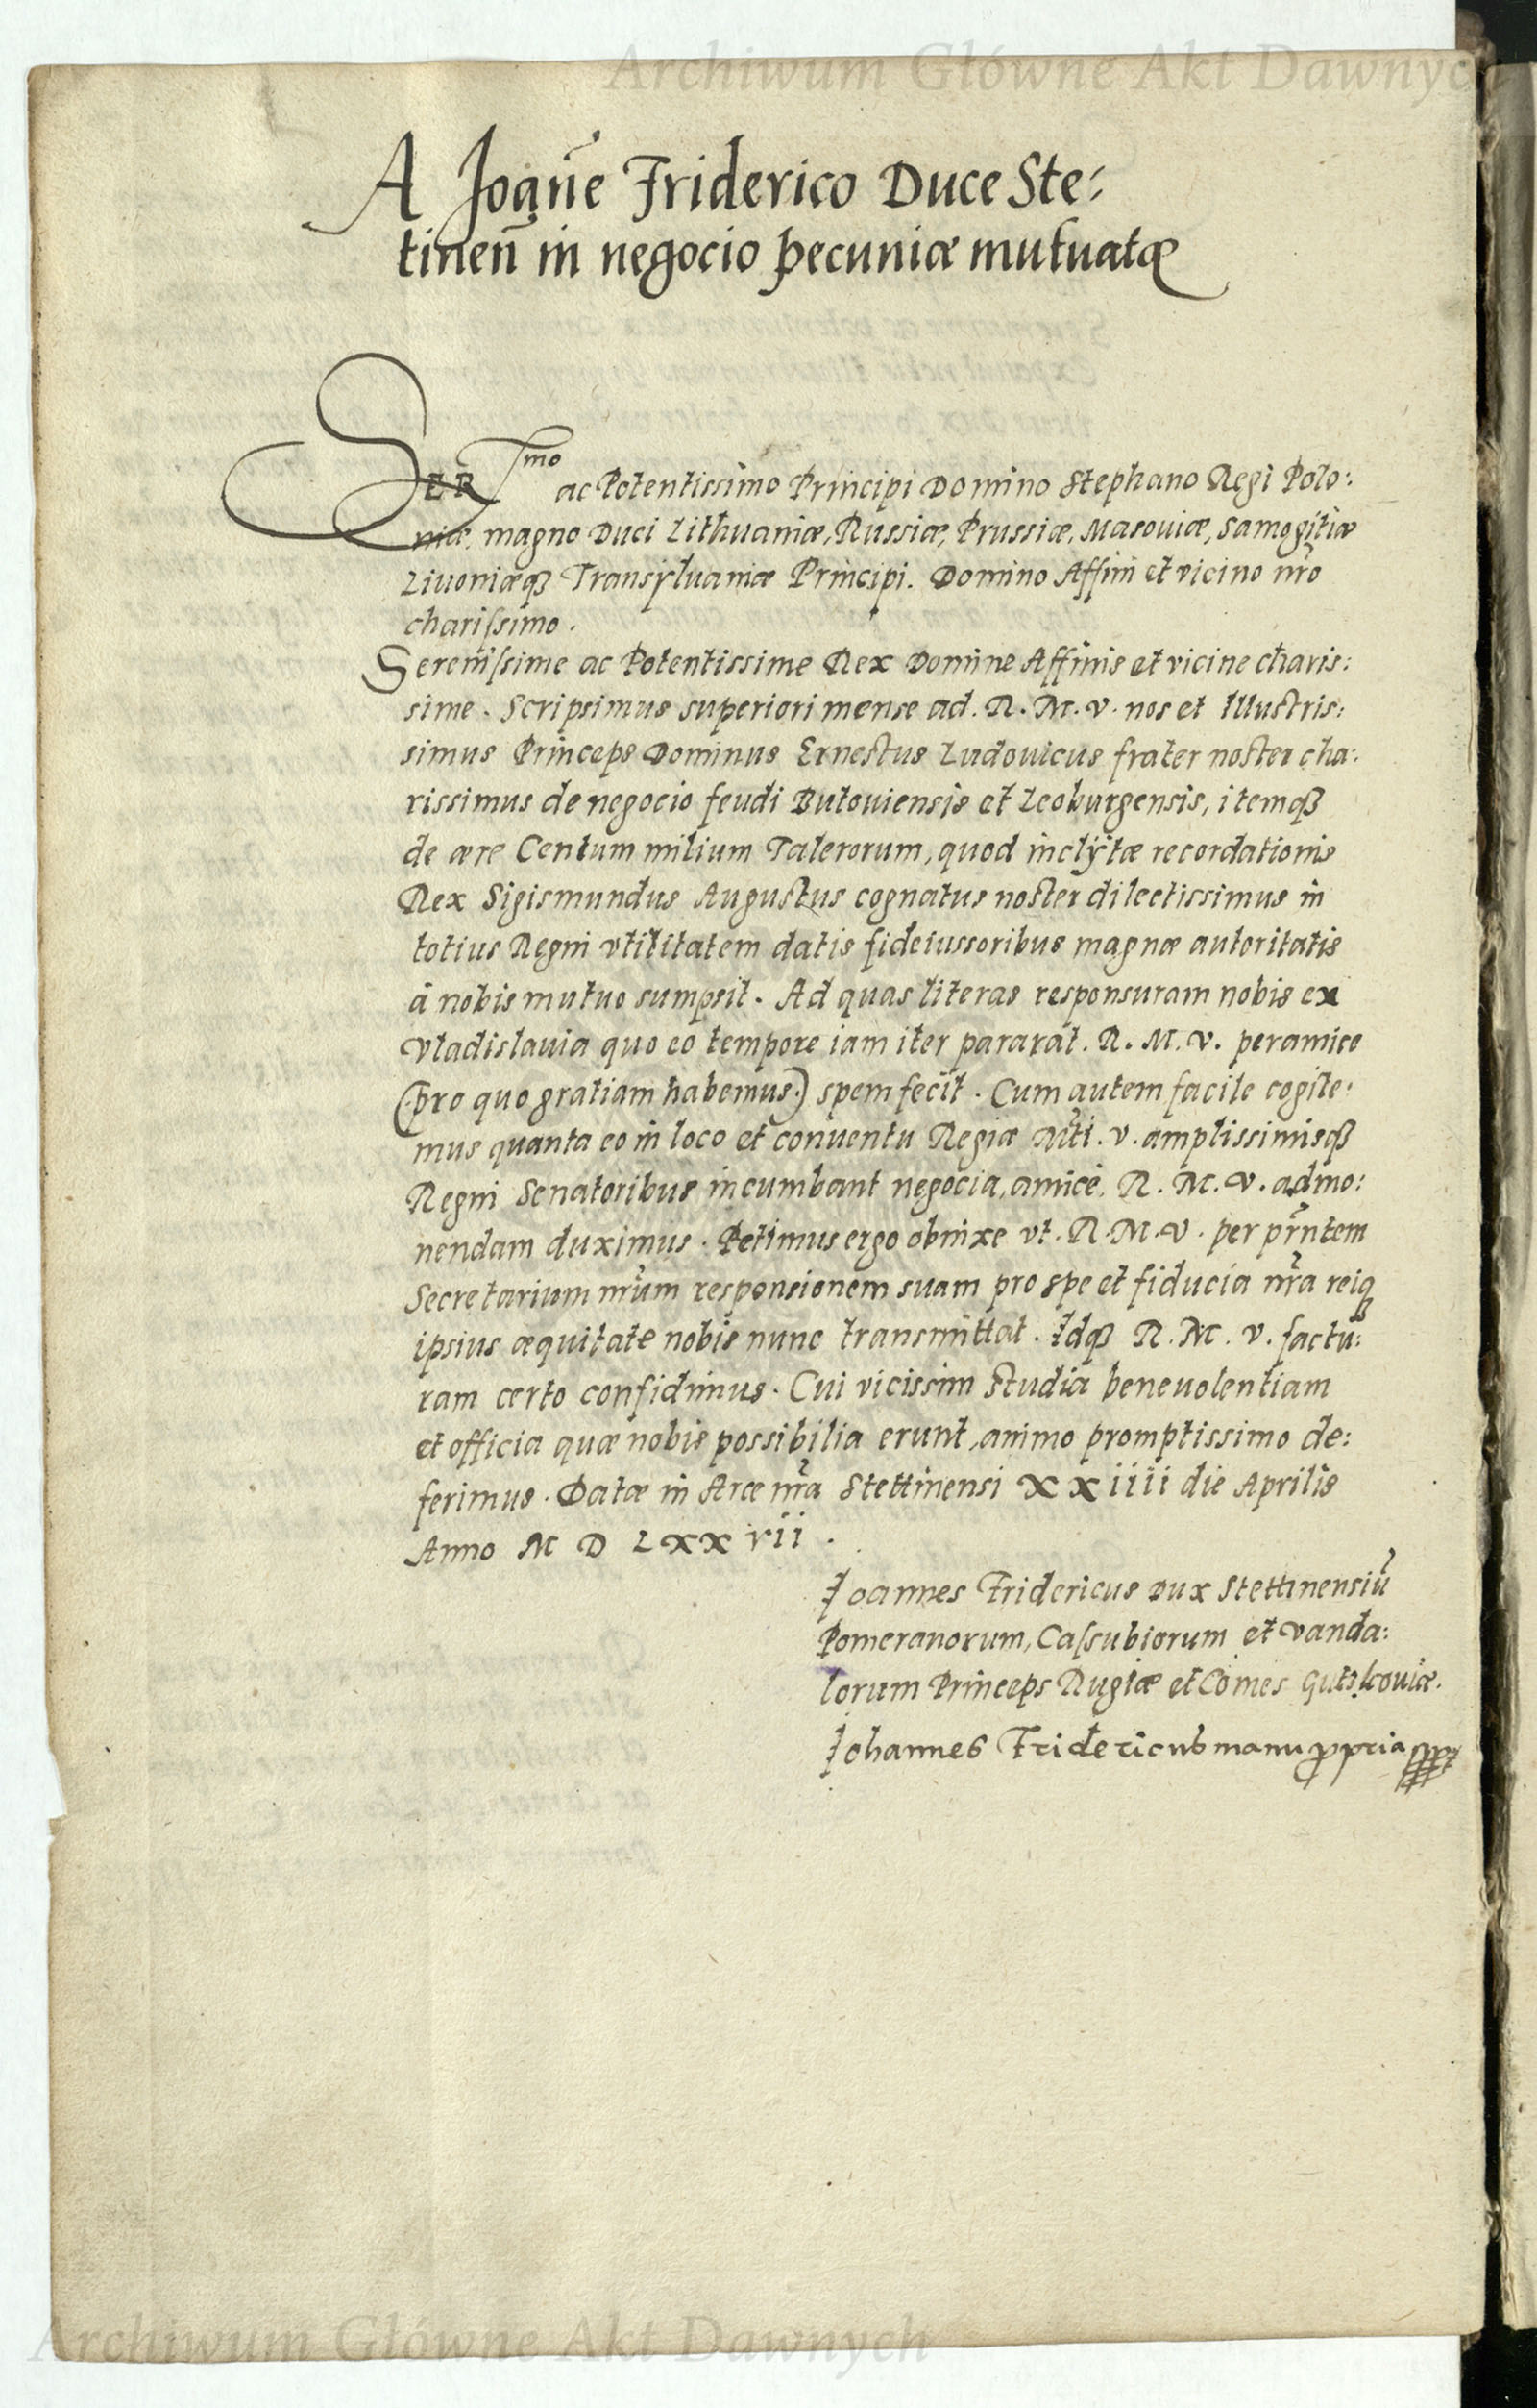 Archiwum Główne Akt Dawnych
A Joañe Friderico Duce Ste:
tineñ in negocio pecuniæ mutuatæ
SER^mo ac Potentissimo Principi Domino Stephano Regi Polo:
niæ, magno Duci Lithuaniæ, Russiæ, Prussiæ, Masouiæ, Samogitiæ
Liuoniæq₃ Transyluaniæ Principi. Domino Affini et vicino nr̃o
charissimo.
Serenissime ac Potentissime Rex Domine Affinis et vicine charis:
sime. Scripsimus superiori mense ad. R. M. v. nos et Illustris:
simus Princeps Dominus Ernestus Ludouicus frater noster cha:
rissimus de negocio feudi Butouiensis et Leoburgensis, itemq₃
de ære Centum milium Talerorum, quod inclÿtæ recordationis
Rex Sigismundus Augustus cognatus noster dilectissimus in
totius Regni vtilitatem datis fideiussoribus magnæ autoritatis
à nobis mutuo sumpsit. Ad quas literas responsuram nobis ex
Vladislauia quo eo tempore iam iter pararat. R. M. v. peramice
(pro quo gratiam habemus.) spem fecit. Cum autem facile cogite:
mus quanta eo in loco et conuentu Regiæ Mti. v. amplissimisq₃
Regni Senatoribus incumbant negocia, amicè. R. M. v. admo:
nendam duximus. Petimus ergo obnixe vt. R. M. v. per pr̃ntem
Secretarium nr̃um responsionem suam pro spe et fiducia nr̃a reiq₃
ipsius æquitate nobis nunc transmittat. Idq₃ R. M. v. factu:
ram certo confidimus. Cui vicissim studia beneuolentiam
et officia quæ nobis possibilia erunt, animo promptissimo de:
ferimus. Datæ in Arce nr̃a Stettinensi XXiiii die Aprilis
Anno M D LXXvii.
Joannes Fridericus Dux Stettinensiũ
Pomeranorum, Cassubiorum et Vanda:
lorum Princeps Rugiæ et Comes Gutzkouiæ.
Johannes Fridericus manu ppria
Archiwum Główne Akt Dawnych